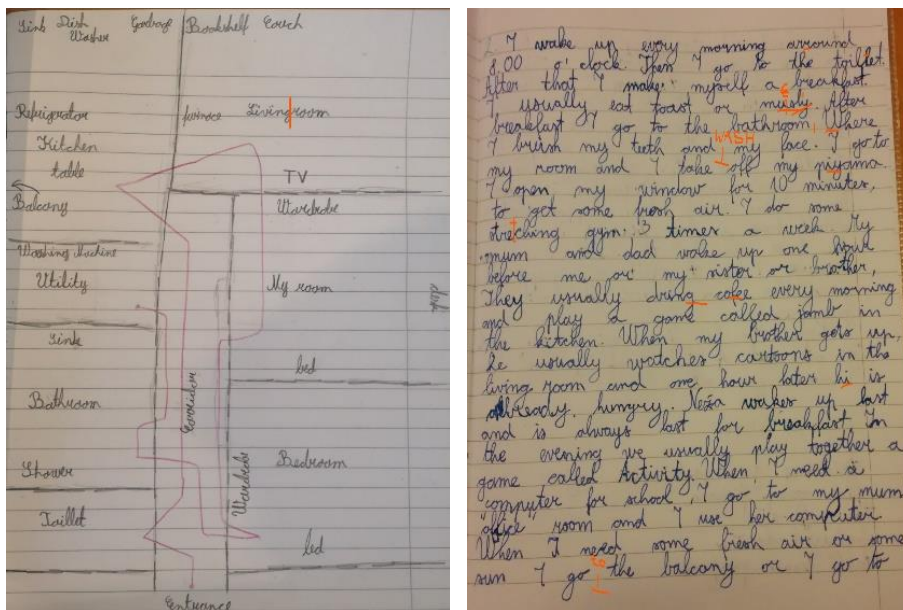 Sink Dish Washer Garbage Bookshelf Couch
Refrigirator furnace Livingroom
Kitchen
table
TV
Balcony Wardrobe
Washing Machine
Utility My room desk
Sink
bed
Bathroom Corridor
Bedroom
Shower Wardrobe
Toillet
bed
Entrance
I wake up every morning arround
8.00 o'clock. Then I go to the toillet.
After that I make myself a breakfast.
I usually eat toast or musly. After
breakfast I go to the bathroom, Where
WASH
I brush my teeth and my face. I go to
my room and I take off my piyama.
I open my window for 10 minutes,
to get some fresh air. I do some
streching gym 3 times a week. My
mum and dad wake up one hour
before me or my sister or brother,
They usually dring cofee every morning
and play a game called jamb in
the kitchen. When my brother gets up,
he usually watches cartoons in the
living room and one hour later hi is
allready hungry. Neža wakes up last
and is always last for breakfast. In
the evening we usually play together a
game called Activity. When I need a
computer for school, I go to my mum
"office" room and I use her computer
When I need some fresh air or some
sun I go the balcany or I go to